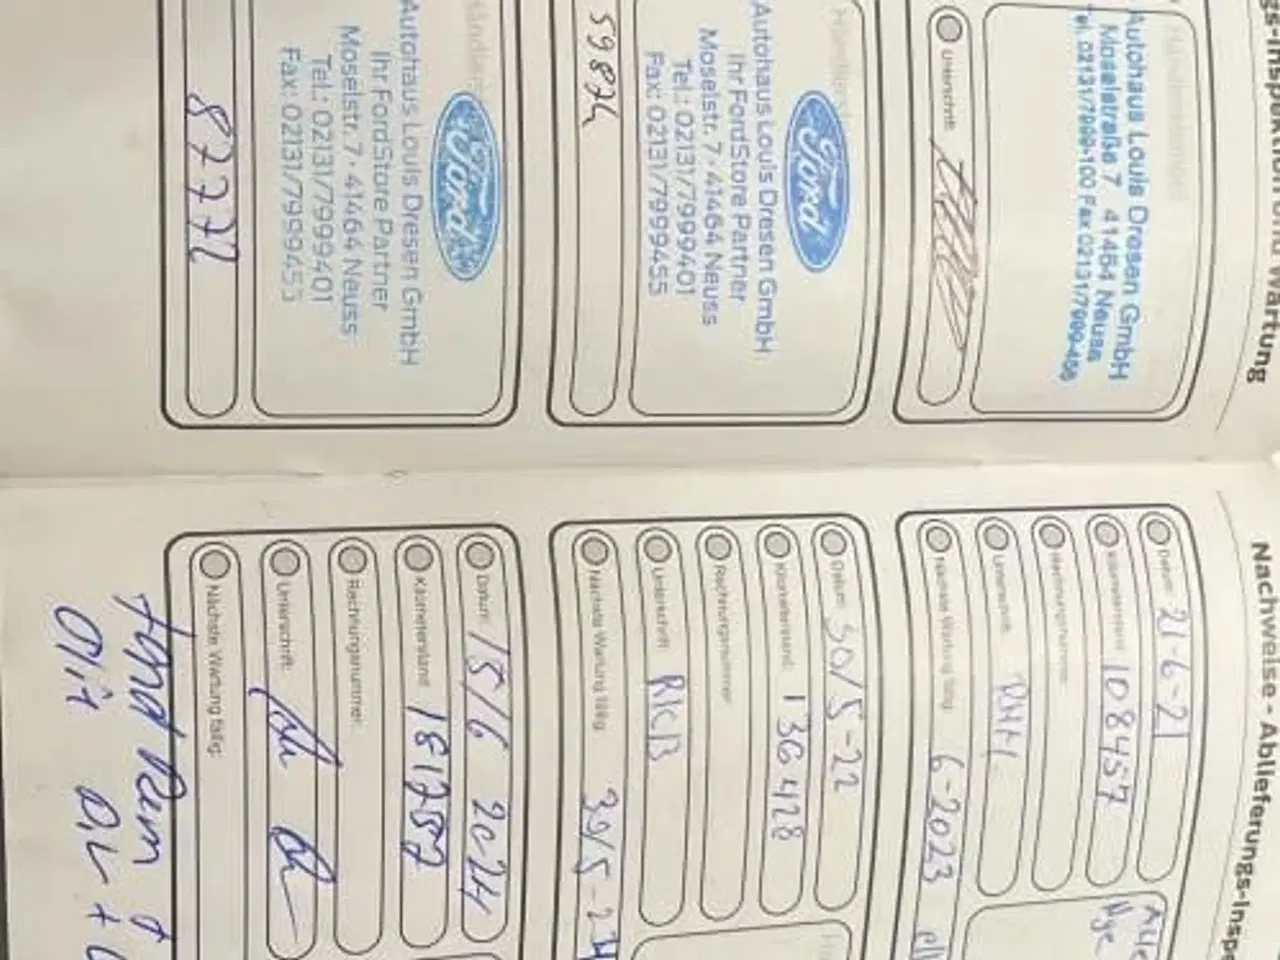 gs-Inspektion und Wartung
Händlerstempel
Autohaus Louis Dresen GmbH
Moselstraße 7 41464 Neuss
Tel. 02131/7999-100 Fax 02131/7999-455
Unterschrift:
Ford
Autohaus Louis Dresen GmbH
Ihr FordStore Partner
Moselstr. 7 · 41464 Neuss
Tel.: 02131/7999401
Fax: 02131/7999455
59874
Ford
Autohaus Louis Dresen GmbH
Ihr FordStore Partner
Moselstr. 7 · 41464 Neuss
Tel.: 02131/7999401
Fax: 02131/7999455
87772
Nachweise - Ablieferungs-Inspe
Datum: 21-6-21
Kilometerstand: 108457
Rechnungsnummer:
Unterschrift:
Nächste Wartung fällig: 6-2023
Datum: 30/5-22
Kilometerstand: 136428
Rechnungsnummer:
Unterschrift:
Nächste Wartung fällig: 30/5-24
Datum: 15/6 2024
Kilometerstand: 181257
Rechnungsnummer:
Unterschrift:
Nächste Wartung fällig: